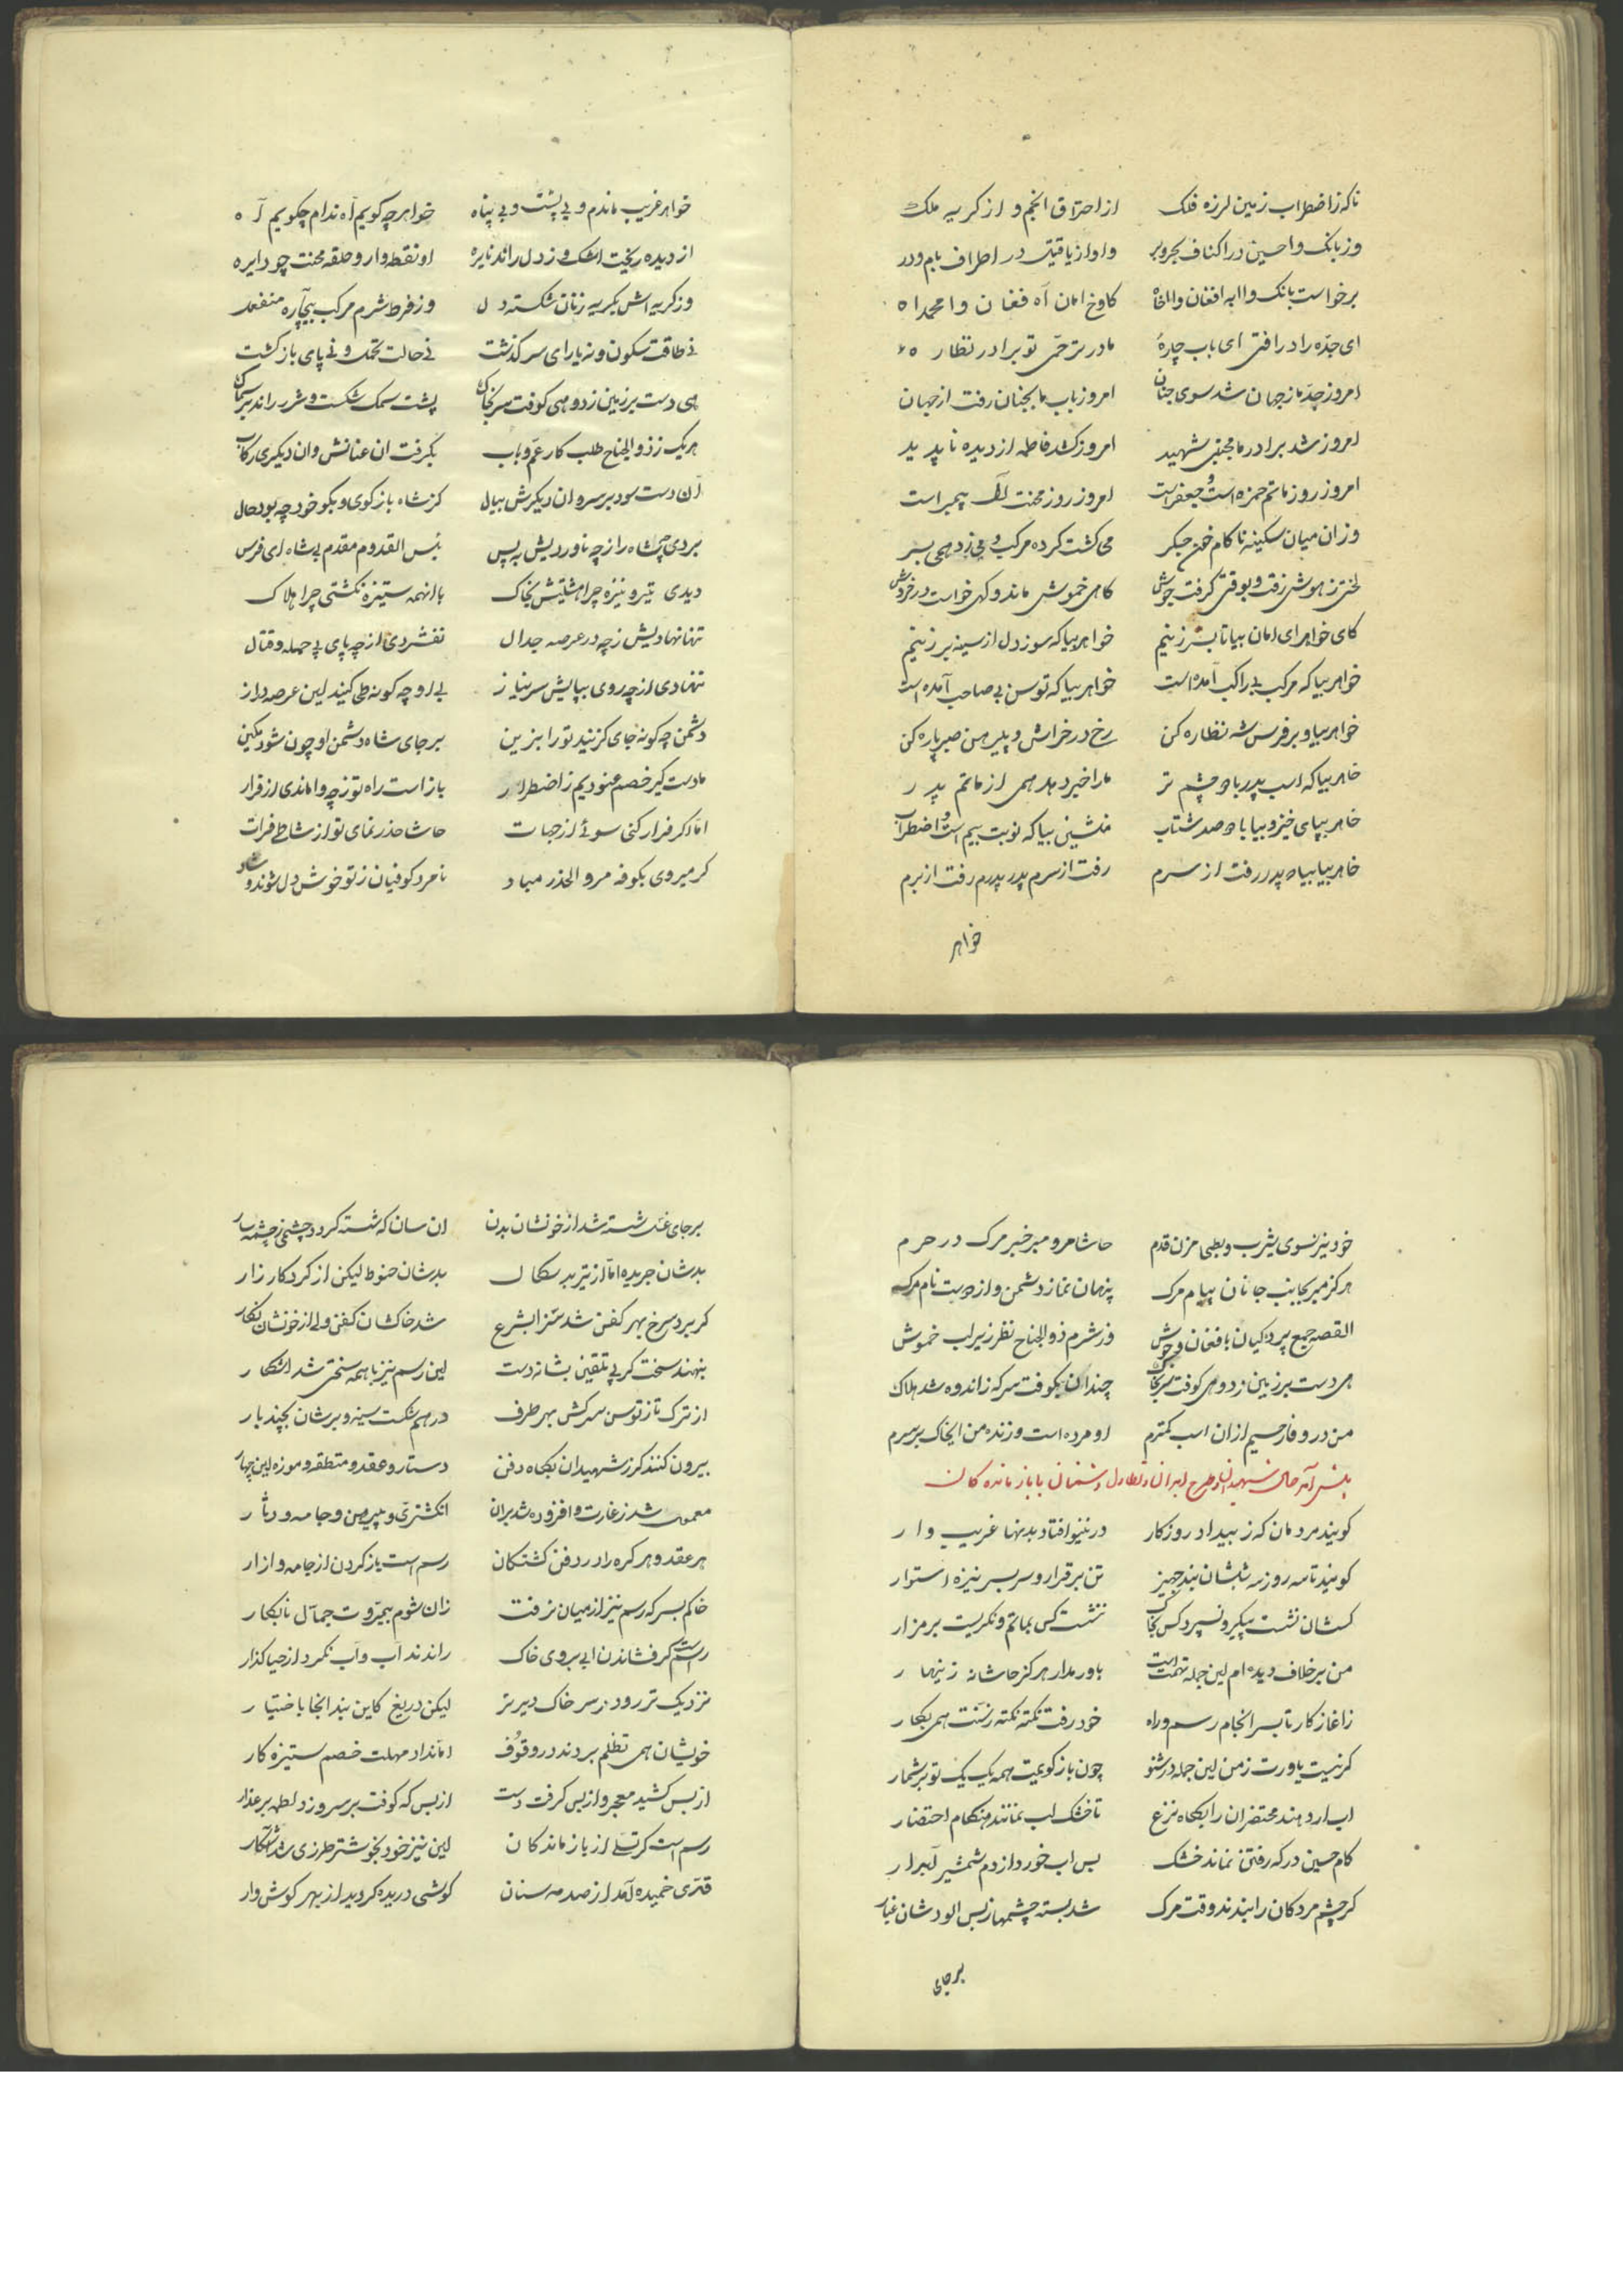 ناکه ز اضطراب زمین لرزه فلک از احتراق انجم و از کریه ملک
وز بانک واحسین در اکناف بحر و بر واواز یاقتیل در اطراف بام و در
برخواست بانک وا ابه افغان وااخاه کاوخ امان آه فغان وا محمداه
ای جدّه راد رافتی ای باب چارهٔ مادر ترحّمی تو برادر نظاره
امروز جدّ ما ز جهان شد سوی جنان امروز باب ما بجنان رفت از جهان
امروز شد برادر ما مجتبی شهید امروز کشد فاطمه از دیده ناپدید
امروز روز ماتم حمزه است و جعفر است امروز روز محنت آل پیمبر است
وز ان میان سکینه ناکام خون جکر می کشت کرد مرکب و می زد همی بسر
لختی ز هوش رفت و بوقتی کرفت جوش کاهی خموش ماند و کهی خواست در خروش
کای خواهر ای امان بیا تا بسر زنیم خواهر بیا که سوز دل از سینه بر زنیم
خواهر بیا که مرکب بی راکب آمده است خواهر بیا که توسن بی صاحب آمده است
خواهر بیا و بر فرس شه نظاره کن رخ در خراش و پیرهن صبر پاره کن
خاهر بیا که اسب پدر با دو چشم تر ما را خبر دهد همی از ماتم پدر
خاهر بپای خیز و بیا با دو صد شتاب منشین بیا که نوبت بیم است و اضطراب
خاهر بیا بیا که پدر رفت از سرم رفت از سرم پدر پدرم رفت از برم
خواهر
خواهر غریب ماندم و بی پشت و بی پناه خواهر چه کویم آه ندام چکویم آه
از دیده ریخت اشک و ز دل راند نایره او نقطه وار و حلقه محنت چو دایره
وز کریه اش بکریه زنان شکسته دل وز فرط شرم مرکب بیچاره منفعل
نی طاقت سکون و نه یارای سرکذشت نی حالت تکلم و نی پای بازکشت
هی دست بر زمین زد و هی کوفت سر بخاک پشت سمک شکست و شرر راند بر سماک
هر یک ز ذوالجناح طلب کار عمّ و باب بکرفت ان عنانش و ان دیکری رکاب
آن دست سود بر سر و ان دیکرش بیال کز شاه باز کوی و بکو خود چه بود حال
بردی چو شاه را ز چه ناوردیش به پس بئس القدوم مقدم بی شاه ای فرس
دیدی بتیر و نیزه چرا هشتیش بخاک با انهمه ستیزه نکشتی چرا هلاک
تنها نهادیش ز چه در عرصه جدال نفشردی از چه پای پی حمله و قتال
ننهادی از چه روی بپایش سر نیاز بی او چه کونه طی کنید این عرصه دراز
دشمن چه کونه جای کزیند تو را بزین بر جای شاه دشمن او چون شود مکین
ما دست کیر خصم عنودیم ز اضطرار باز است راه تو ز چه واماندی از فرار
امّا اکر فرار کنی سوئی از جهات حاشا حذر نمای تو از شاطی فرات
کر میروی بکوفه مرو الحذر مباد نامرد کوفیان ز تو خوش دل شوند و شاد
خود نیز سوی یثرب و بطحی مزن قدم حاشا مرو مبر خبر مرک در حرم
هرکز مبر بجانب جانان پیام مرک پنهان نما ز دشمن و از دوست نام مرک
القصه جمع پردکیان با فغان و جوش وز شرم ذوالجناح نظر زیر لب خموش
هی دست بر زمین زد و هی کوفت سر بخاک چندان بکوفت سر که ز اندوه شد هلاک
من در وفا رحیم از ان اسب کمترم او مرده است و زنده من ایخاک بر سرم
کویند مردمان که ز بیداد روزکار در نینوا فتاد بدنها غریب وار
کویند تا سه روز سه شبشان نبد جهیز تن برقرار و سر بسر نیزه استوار
کسشان نشست پیکر و نسپرد کس بخاک ننشست کس بماتم و نکریست بر مزار
من بر خلاف دیده ام این جمله تهمت است باور مدار هرکز حاشا نه زینهار
ز اغاز کار تا بسر انجام رسم و راه خود رفت نکته نکته همی بکار
کر نیست باورت ز من این جمله در شنو چون باز کویمت همه یک یک تو برشمار
اب ار دهند محتضران را بکاه نزع تا خشک لب نمانند هنکام احتضار
کام حسین در که رفتن نماند خشک بس اب خورد از دم شمشیر آبدار
کر چشم مردکان را بندند وقت مرک شد بسته چشمها ز بس الودشان غبار
بر جای
بر جای غسل شسته شد از خونشان بدن ان سان که شسته کردد چشمی ز چشمه سار
بدشان جریده امّا از تیر بد سکال بدشان حنوط لیکن از کرد کارزار
کر برد سرخ بهر کفن شد سزا بشرع شد خاکشان کفن ولی از خونشان نکار
بنهند سخت کر پی تلقین بشانه دست این رسم نیز با همه سختی شد اشکار
از ترک تاز توسن سرکش بهر طرف در هم شکست سینه و برشان بچند بار
بیرون کنند کر ز شهیدان بکاه دفن دستار و عقد و منطقه و موزه این چهار
معمول شد ز غارت و افزوده شد بران انکشتری و پیرهن و جامه و دثار
هر عقد و هر کره را در دفن کشتکان رسم است باز کردن از جامه و ازار
خاکم بسر که رسم نیز از میان نرفت زان شوم بیمروّت جمّال نابکار
رسم است کر فشاندن ابی بروی خاک راندند آب و آب نکرد از حیا کذار
نزدیک تر رود ز سر خاک دیرتر لیکن دریغ کاین نبد انجا باختیار
خویشان همی تظلم بردند در وقوف امّا نداد مهلت خصم ستیزه کار
از بس کشید معجر و از بس کرفت دست از بس که کوفت بر سر و زد لطمه بر عذار
رسم است کر تسلّی از بازماندکان این نیز خود بخوشتر طرزی شد آشکار
قدّی خمیده آمد از صدمه سنان کوشی دریده کردید از بهر کوش وار